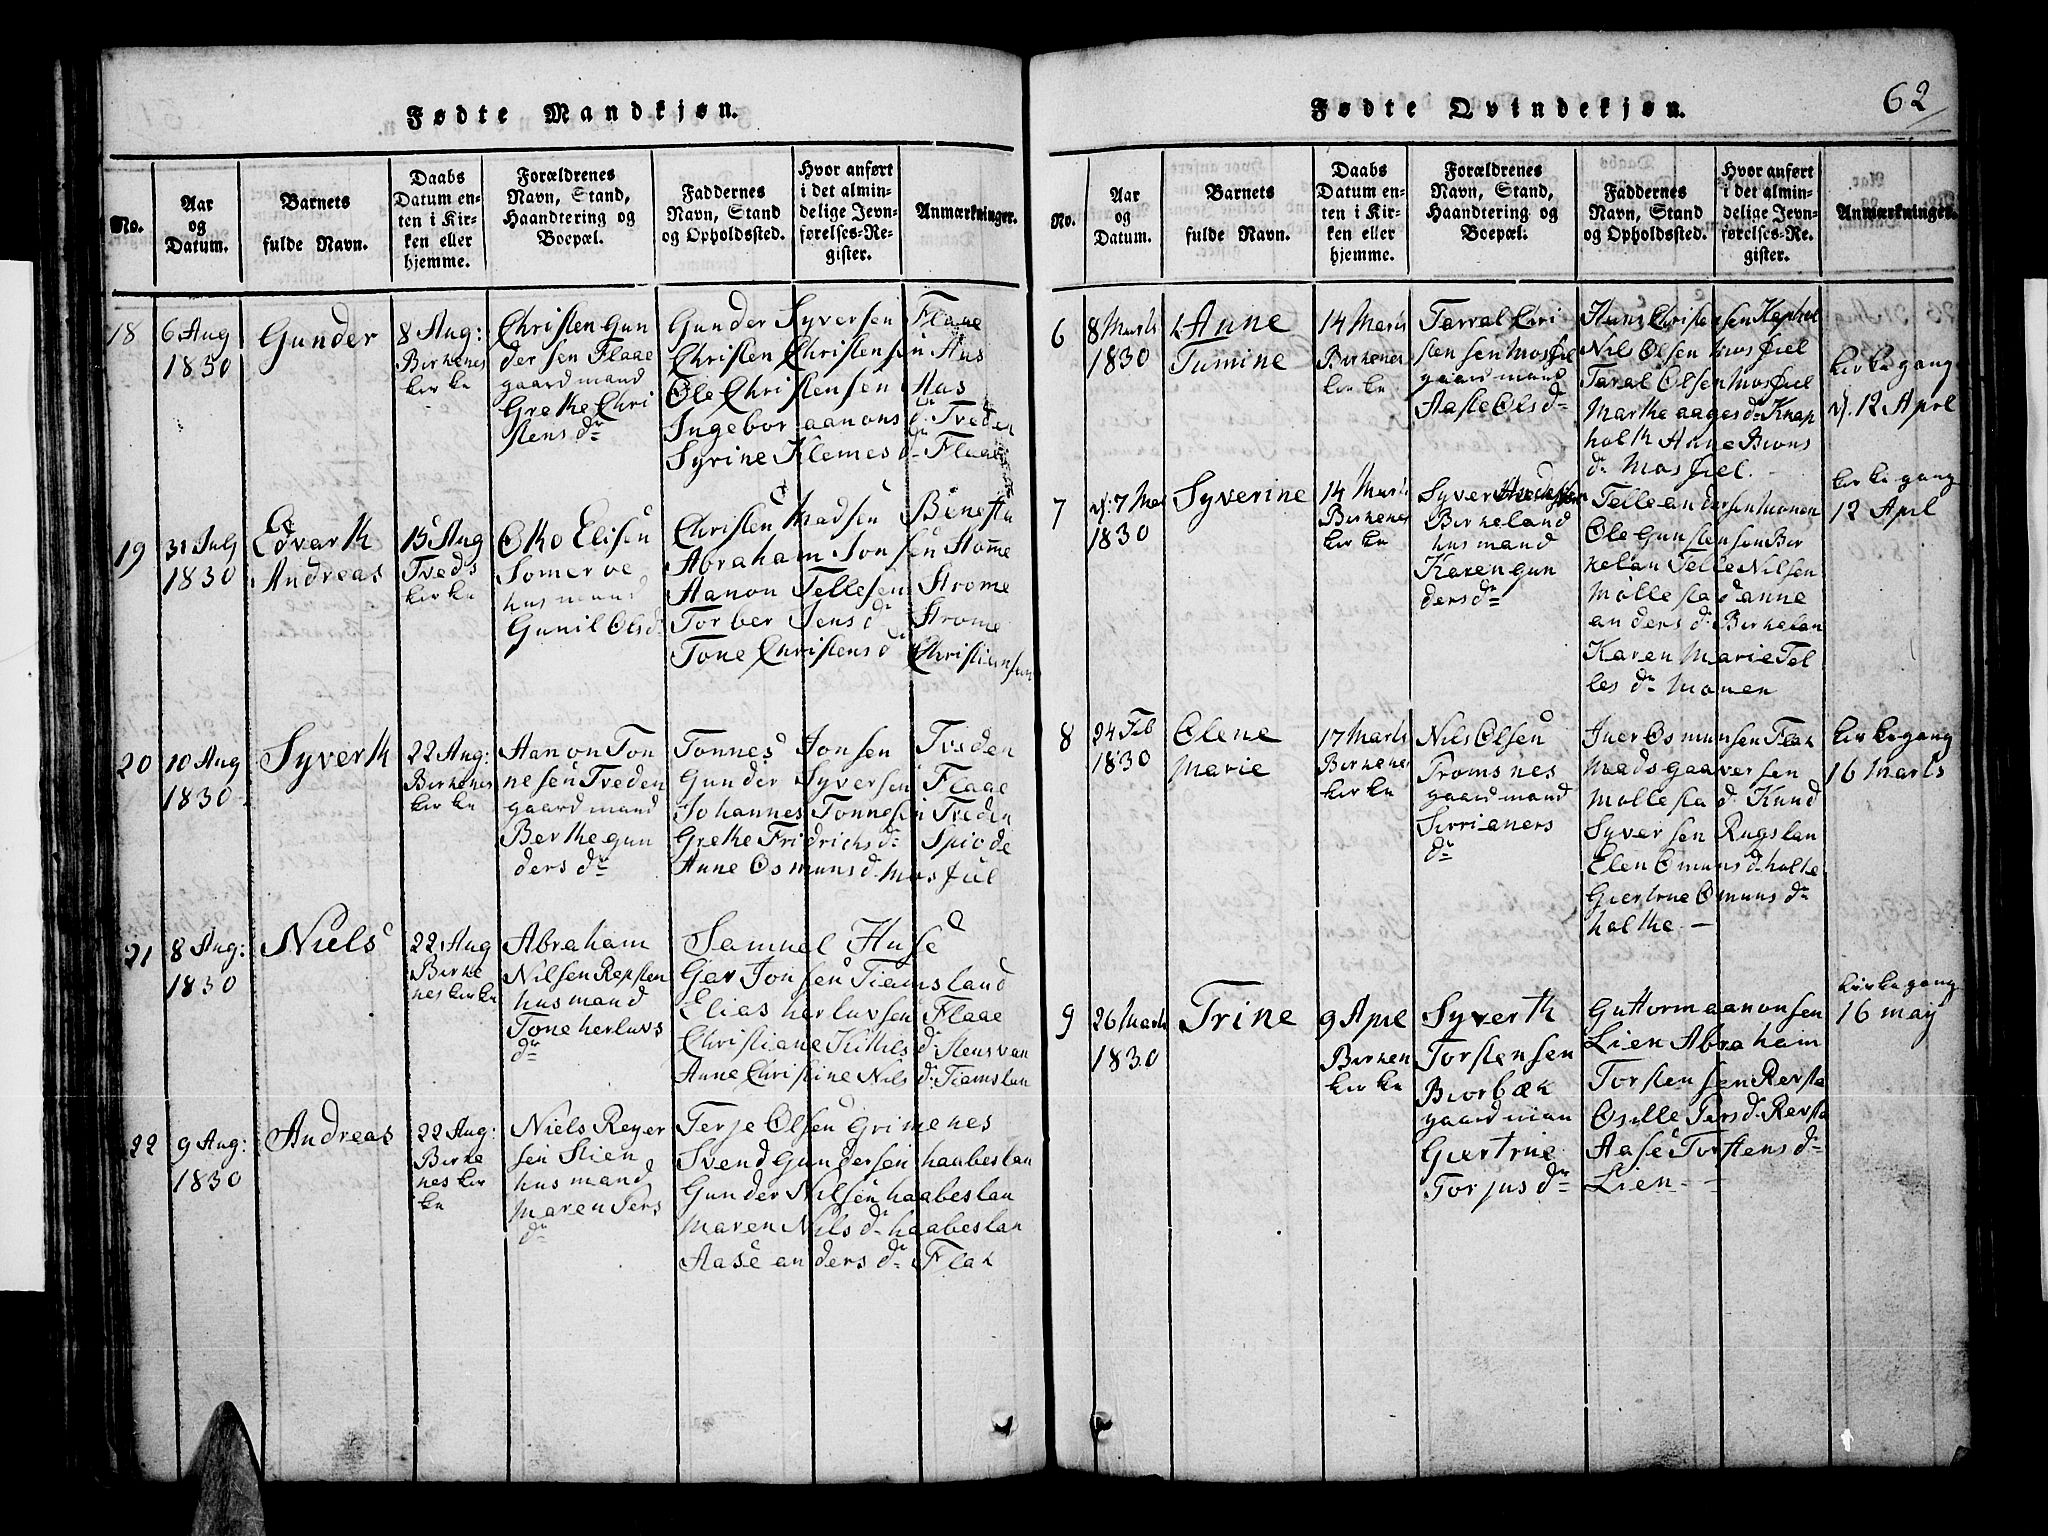 Fødte Mandkjøn.
No.
Aar
og
Datum.
Barnets
fulde Navn.
Daabs
Datum en-
ten i Kir-
ken eller
hjemme.
Forældrenes
Navn, Stand,
Haandtering og
Boepæl.
Faddernes
Navn, Stand
og Opholdssted.
Hvor anført
i det almin-
delige Jevn-
førelses-Re-
gister.
Anmærkninger.
18
6 Aug
1830
Gunder
8 Aug:
Birkenes
kirke
Christen Gun
dersen Flaae
gaardmand
Grethe Chri
stens dr
Gunder Syversen Flaae
Christen Christensen Aas
Ole Christensen Aas
Ingebor aanons dr Treden
Syrine Klemes dr Flaae
19
31 July
1830
Edvarth
Andreas
15 Aug
Tveds
kirke
Otto Elisen
Somerve
husmand
Gunil Olsd.
Christen Madsen
Abraham Jonsen Stome
Aanon Tellesen Strome
Torber Jens dr Strome
Tone Christens dr Christiansun
20
10 Aug
1830
Syverth
22 Aug:
Birkenes
kirke
Aanon Ton
nesen Treden
gaardmand
Berthe gun
ders dr
Tonnes Jonsen Treden
Gunder Syversen Flaae
Johannes Tonnesen Treden
Grethe Fridrichs dr Spiode
Anne Osmuns d. Mosfiel
21
8 Aug:
1830
Niels
22 Aug
Birke
nes kirke
Abraham
Nilsen Repsten
husmand
Tone herluvs
dr
Samuel Huse
Ger Jonsen Tiamsland
Elias herluvsen Flaae
Christiane Kittils d. Stensvan
Anne Christine Nils d. Tiamslan
22
9 Aug:
1830
Andreas
22 Aug:
Birke
nes kir
ke
Niels Reyer
sen Stien
husmand
Maren Pers
dr
Terje Olsen Grimenes
Svend Gundersen haabeslan
Gunder Nilsen haabeslan
Maren Nils dr haabeslan
Aase anders dr Flak
Fødte Qvindekjøn.
62
No.
Aar
og
Datum.
Barnets
fulde Navn.
Daabs
Datum en-
ten i Kir-
ken eller
hjemme.
Forældrenes
Navn, Stand,
Haandtering og
Boepæl.
Faddernes
Navn, Stand
og Opholdssted.
Hvor anført
i det almin-
delige Jevn-
førelses-Re-
gister.
Anmærkninger.
6
8 Marts
1830
Anne
Tomine
14 Marts
Birkenes
kirke
Tarral Chri
stensen Mosfiel
gaardmand
Aaste Ols dr
Hans Christensen
Nils Olsen Mosfiel
Taral Olsen Mosfiel
Marthe aages dr Knap
holth Anne Bions
dr Mosfiel.
kirkegang
d. 12 Apri
7
d. 7 Mar
1830
Syverine
14 Marts
Birkenes
kirke
Syver
Birkeland
husmand
Karen gun
ders dr
Telle andersen Monen
Ole Gunstensen Bir
kelan Telle Nilsen
Mollesta d anne
anders dr Birkelan
Karen Marie Tel
les dr Monen
kirkegang
12 Aprl
8
24 Feb
1830
Olene
Marie
17 Marts
Birkenes
kirke
Nils Olsen
Tromsnes
gaardmand
Sirrianers
dr
Iver Osmunsen Flak
Mads gaaversen
Mollesta d. Knud
Syversen Rugslan
Elen Omuns d. holte
Giertrue Omuns dr
holthe. —
kirkegang
16 Marts
9
26 Marts
1830
Trine
9 Aprl
Birkenes
kirke
Syverth
Torstensen
Biorbæk
gaardman
Giertrue
Torjus dr
Guttorm aanonsen
Lien Abraham
Torstensen Revsta
Osille Pers d. Revsta
Aase Torstens dr
Lien —
kirkegang
16 may